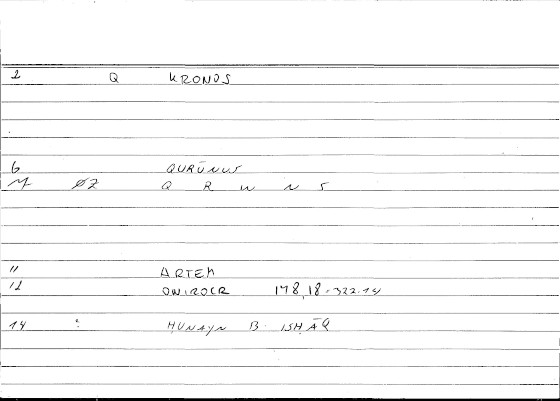 2 Q KRONOS
6 QURŪNUS
M ØZ Q R W N S
11 ARTEM
12 ONIROCR 178,18-322.14
14 : ḤUNAYN B ISḤĀQ